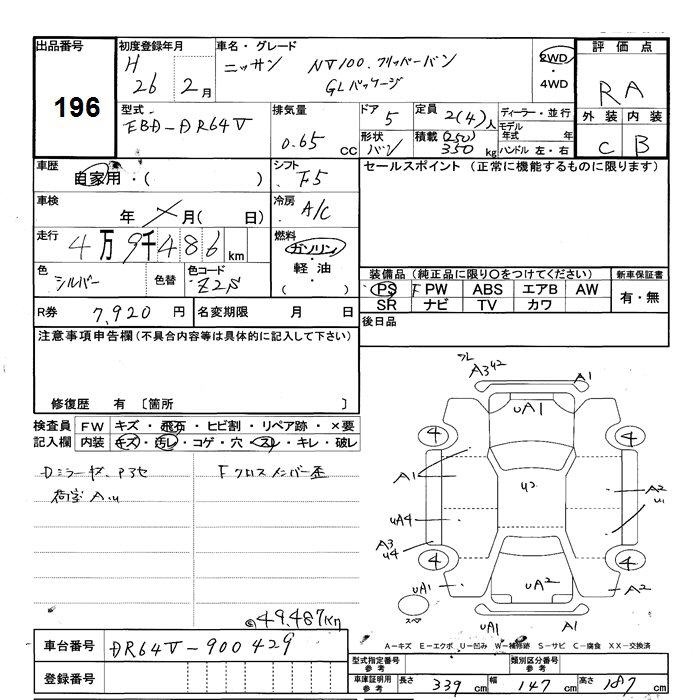 出品番号 196
初度登録年月 H 26 年 2 月
車名・グレード ニッサン NV100.クリッパーバン GLパッケージ
2WD・4WD
評価点 RA
外装 C 内装 B
型式 EBD-DR64V
排気量 0.65 CC
ドア 5
形状 バン
定員 2(4)人
積載 (250) 350 kg
ディーラー・並行
モデル年式 年
ハンドル 左・右
車歴 自家用・( )
シフト F5
セールスポイント (正常に機能するものに限ります)
車検 年 月( 日)
冷房 A/C
走行 4万9千486 km
燃料 ガソリン・軽油・( )
色 シルバー 色替
色コード Z2S
装備品 (純正品に限り〇をつけてください)
PS F PW ABS エアB AW
SR ナビ TV カワ
新車保証書 有・無
R券 7,920 円
名変期限 月 日
後日品
注意事項申告欄 (不具合内容等は具体的に記入して下さい)
修復歴 有 〔箇所 〕
検査員記入欄
FW キズ・飛石・ヒビ割・リペア跡・×要
内装 キズ・汚レ・コゲ・穴・スレ・キレ・破レ
Dミラーキズ、
Fクロスメンバー歪
荷室A.u
49,487Km
フレ A3 u2
A1
uA1
4
4
A1
u2
A2
u1
uA4
A3
u4
4
4
uA1
uA2
A2
スペア
uA1
A1
A-キズ E-エクボ U-凹み W-補修跡 S-サビ C-腐食 XX-交換済
車台番号 DR64V-900429
型式指定番号 参考
類別区分番号 参考
登録番号
車庫証明用 参考 長さ 339 cm 幅 147 cm 高さ 187 cm